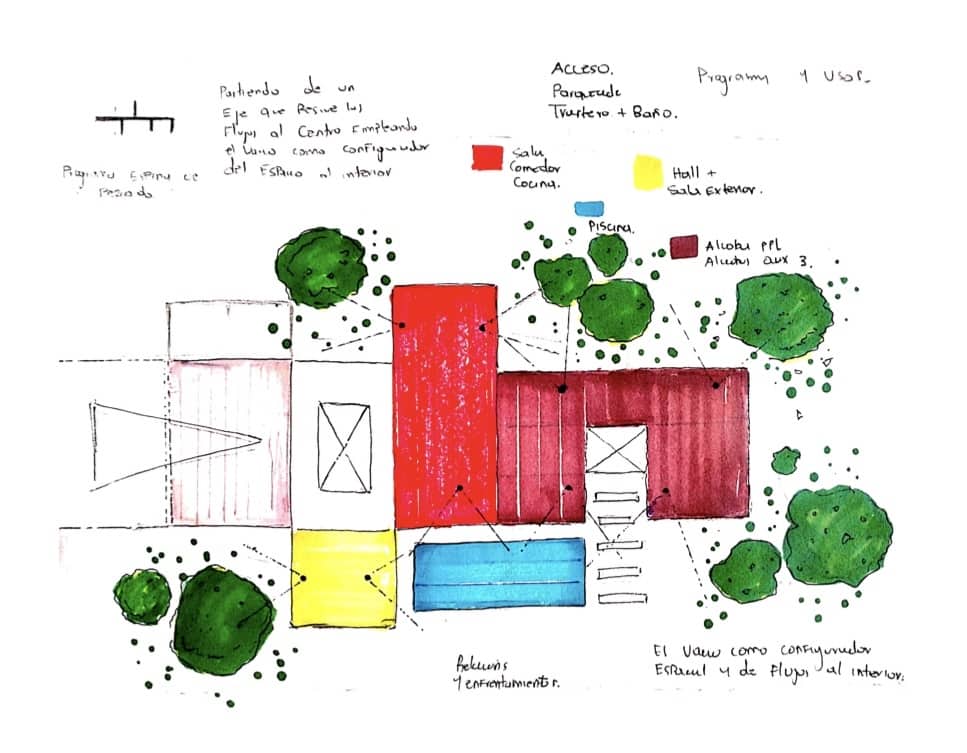 Partiendo de un
Eje que Resive los
Flujos al Centro Empleando
el Vacio como configurador
del Espacio al interior
Programa Espina de
Pescado
ACCESO.
Parqueade
Trastero + Baño.
Programa y Usos.
Sala
Comedor
Cocina.
Hall +
Sala Exterior.
Piscina.
Alcoba PPL
Alcobas aux 3.
Relacions
y enfrentamientos.
El Vacio como configurador
Espacial y de Flujos al interior.